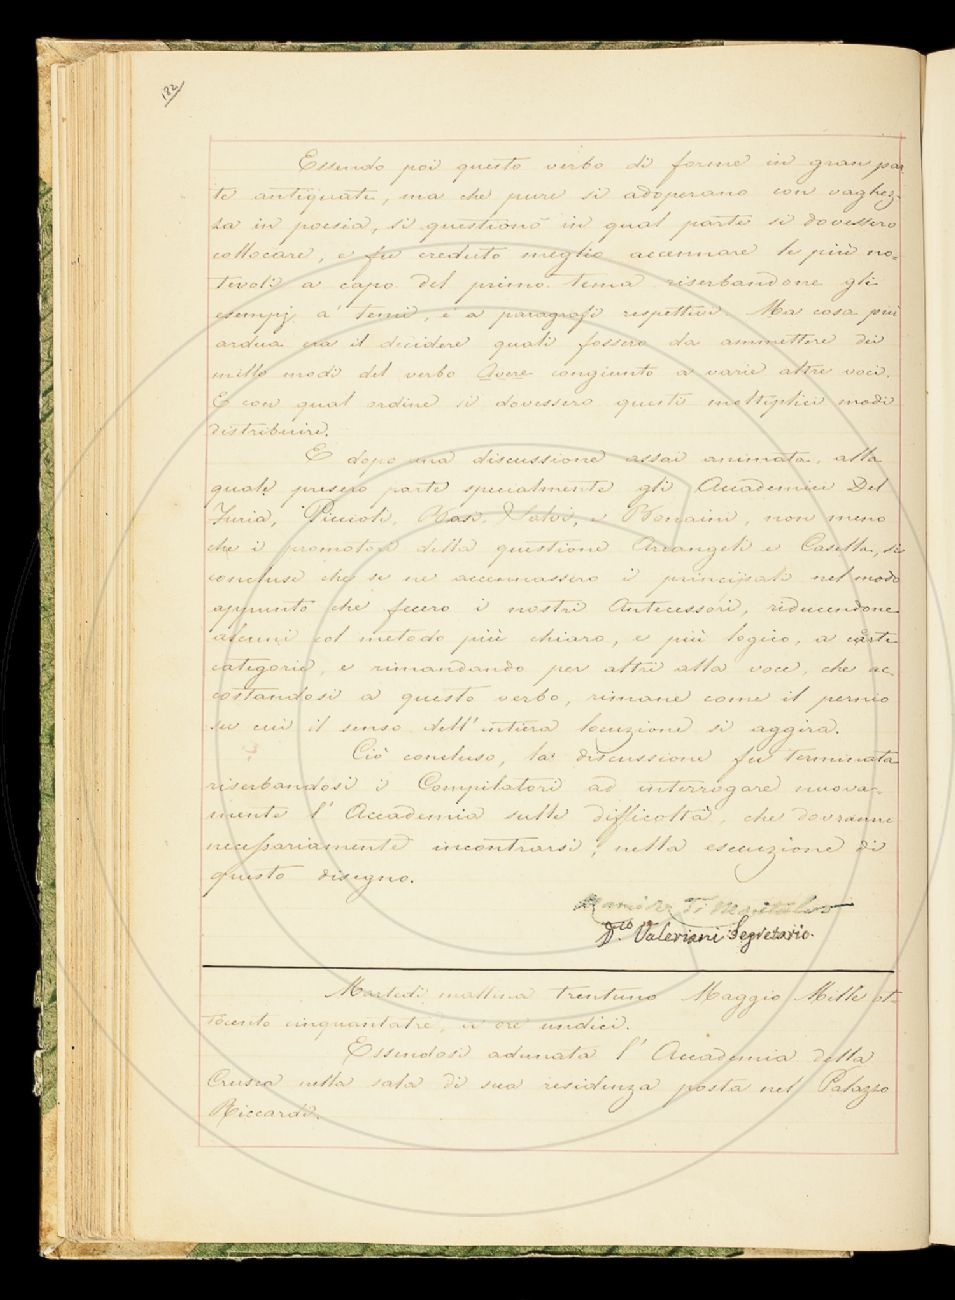 182
Essendo poi questo verbo di forme in gran par
te antiquate, ma che pure si adoperano con vaghez-
za in poesia, si questionò in qual parte si dovessero
collocare, e fu creduto meglio accennare le più no-
tevoli a capo del primo tema riserbandone gli
esempj a' temi, e a paragrafi respettivi. Ma cosa più
ardua era il decidere quali fossero da ammettere dei
mille modi del verbo Avere congiunto a varie altre voci.
E con qual ordine si dovessero questi molteplici modi
distribuire.
E dopo una discussione assai animata, alla
quale presero parte specialmente gli Accademici Del
Furia, Piccioli, Nasi, Salvi, e Bonaini, non meno
che i promotori della questione Arcangeli e Casella, si
concluse che se ne accennassero i principali nel modo
appunto che fecero i nostri Antecessori, riducendone
alcuni col metodo più chiaro, e più logico, a certe
categorie, e rimandando per altri alla voce, che ac-
costandosi a questo verbo, rimane come il pernio
su cui il senso dell'intiera locuzione si aggira.
Ciò concluso, la discussione fu terminata
riserbandosi i Compilatori ad interrogare nuova-
mente l'Accademia sulle difficoltà, che dovranno
necessariamente incontrarsi, nella esecuzione di
questo disegno.
Ramirez Di Montalvo
D.co Valeriani Segretario.
Martedì mattina trentuno Maggio Mille ot-
tocento cinquantatre, a ore undici.
Essendosi adunata l'Accademia della
Crusca nella sala di sua residenza posta nel Palazzo
Riccardi.